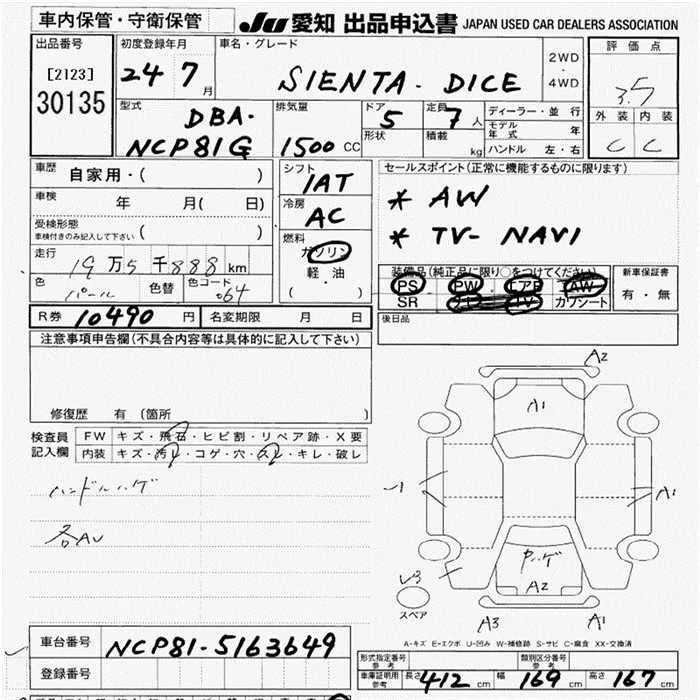 車内保管・守衛保管
JU 愛知 出品申込書 JAPAN USED CAR DEALERS ASSOCIATION
出品番号
[2123]
30135
初度登録年月
24 7 月
車名・グレード
SIENTA. DICE
2WD
・
4WD
評価点
3.5
外装 内装
C C
型式
DBA-
NCP81G
排気量
1500 CC
ドア
5
形状
定員
7 人
積載
kg
ディーラー・並行
モデル年式 年
ハンドル 左・右
車歴
自家用・( )
車検
年 月( 日)
受検形態
車検付きのみ記入して下さい ( )
走行
19 万 5 千 888 km
色
パール
色替
色コード
064
シフト
1AT
冷房
AC
燃料
ガソリン
軽・油
( )
セールスポイント(正常に機能するものに限ります)
* AW
* TV- NAVI
装備品(純正品に限り○をつけてください)
PS PW エアB AW
SR ナビ TV カワシート
新車保証書
有・無
R券 10490 円
名変期限 月 日
後日品
注意事項申告欄(不具合内容等は具体的に記入して下さい)
修復歴 有 (箇所 )
検査員
記入欄
FW キズ・飛石・ヒビ割・リペア跡・X要
内装 キズ・汚レ・コゲ・穴・スレ・キレ・破レ
ハンドルハゲ
各AU
A2
A1
A1
Pハゲ
A2
A3
A1
スペア
A-キズ E-エクボ U-凹み W-補修跡 S-サビ C-腐食 XX-交換済
車台番号
NCP81-5163649
登録番号
形式指定番号
参考
類別区分番号
参考
車庫証明用
参考
長さ 412 cm 幅 169 cm 高さ 167 cm